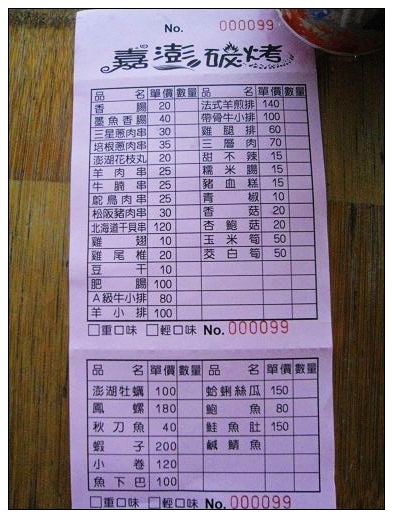 No. 000099
嘉澎碳烤
品名 單價 數量 品名 單價 數量
香腸 20 法式羊煎排 140
墨魚香腸 40 帶骨牛小排 100
三星蔥肉串 30 雞腿排 60
培根蔥肉串 35 三層肉 70
澎湖花枝丸 20 甜不辣 15
羊肉串 25 糯米腸 15
牛腩串 25 豬血糕 15
鴕鳥肉串 25 青椒 10
松阪豬肉串 30 香菇 20
北海道干貝串 120 杏鮑菇 20
雞翅 10 玉米筍 50
雞尾椎 20 茭白筍 50
豆干 10
肥腸 100
A級牛小排 80
羊小排 100
□重口味 □輕口味 No. 000099
品名 單價 數量 品名 單價 數量
澎湖牡蠣 100 蛤蜊絲瓜 150
鳳螺 180 鮑魚 80
秋刀魚 40 鮭魚肚 150
蝦子 200 鹹鯖魚
小卷 120
魚下巴 100
□重口味 □輕口味 No. 000099